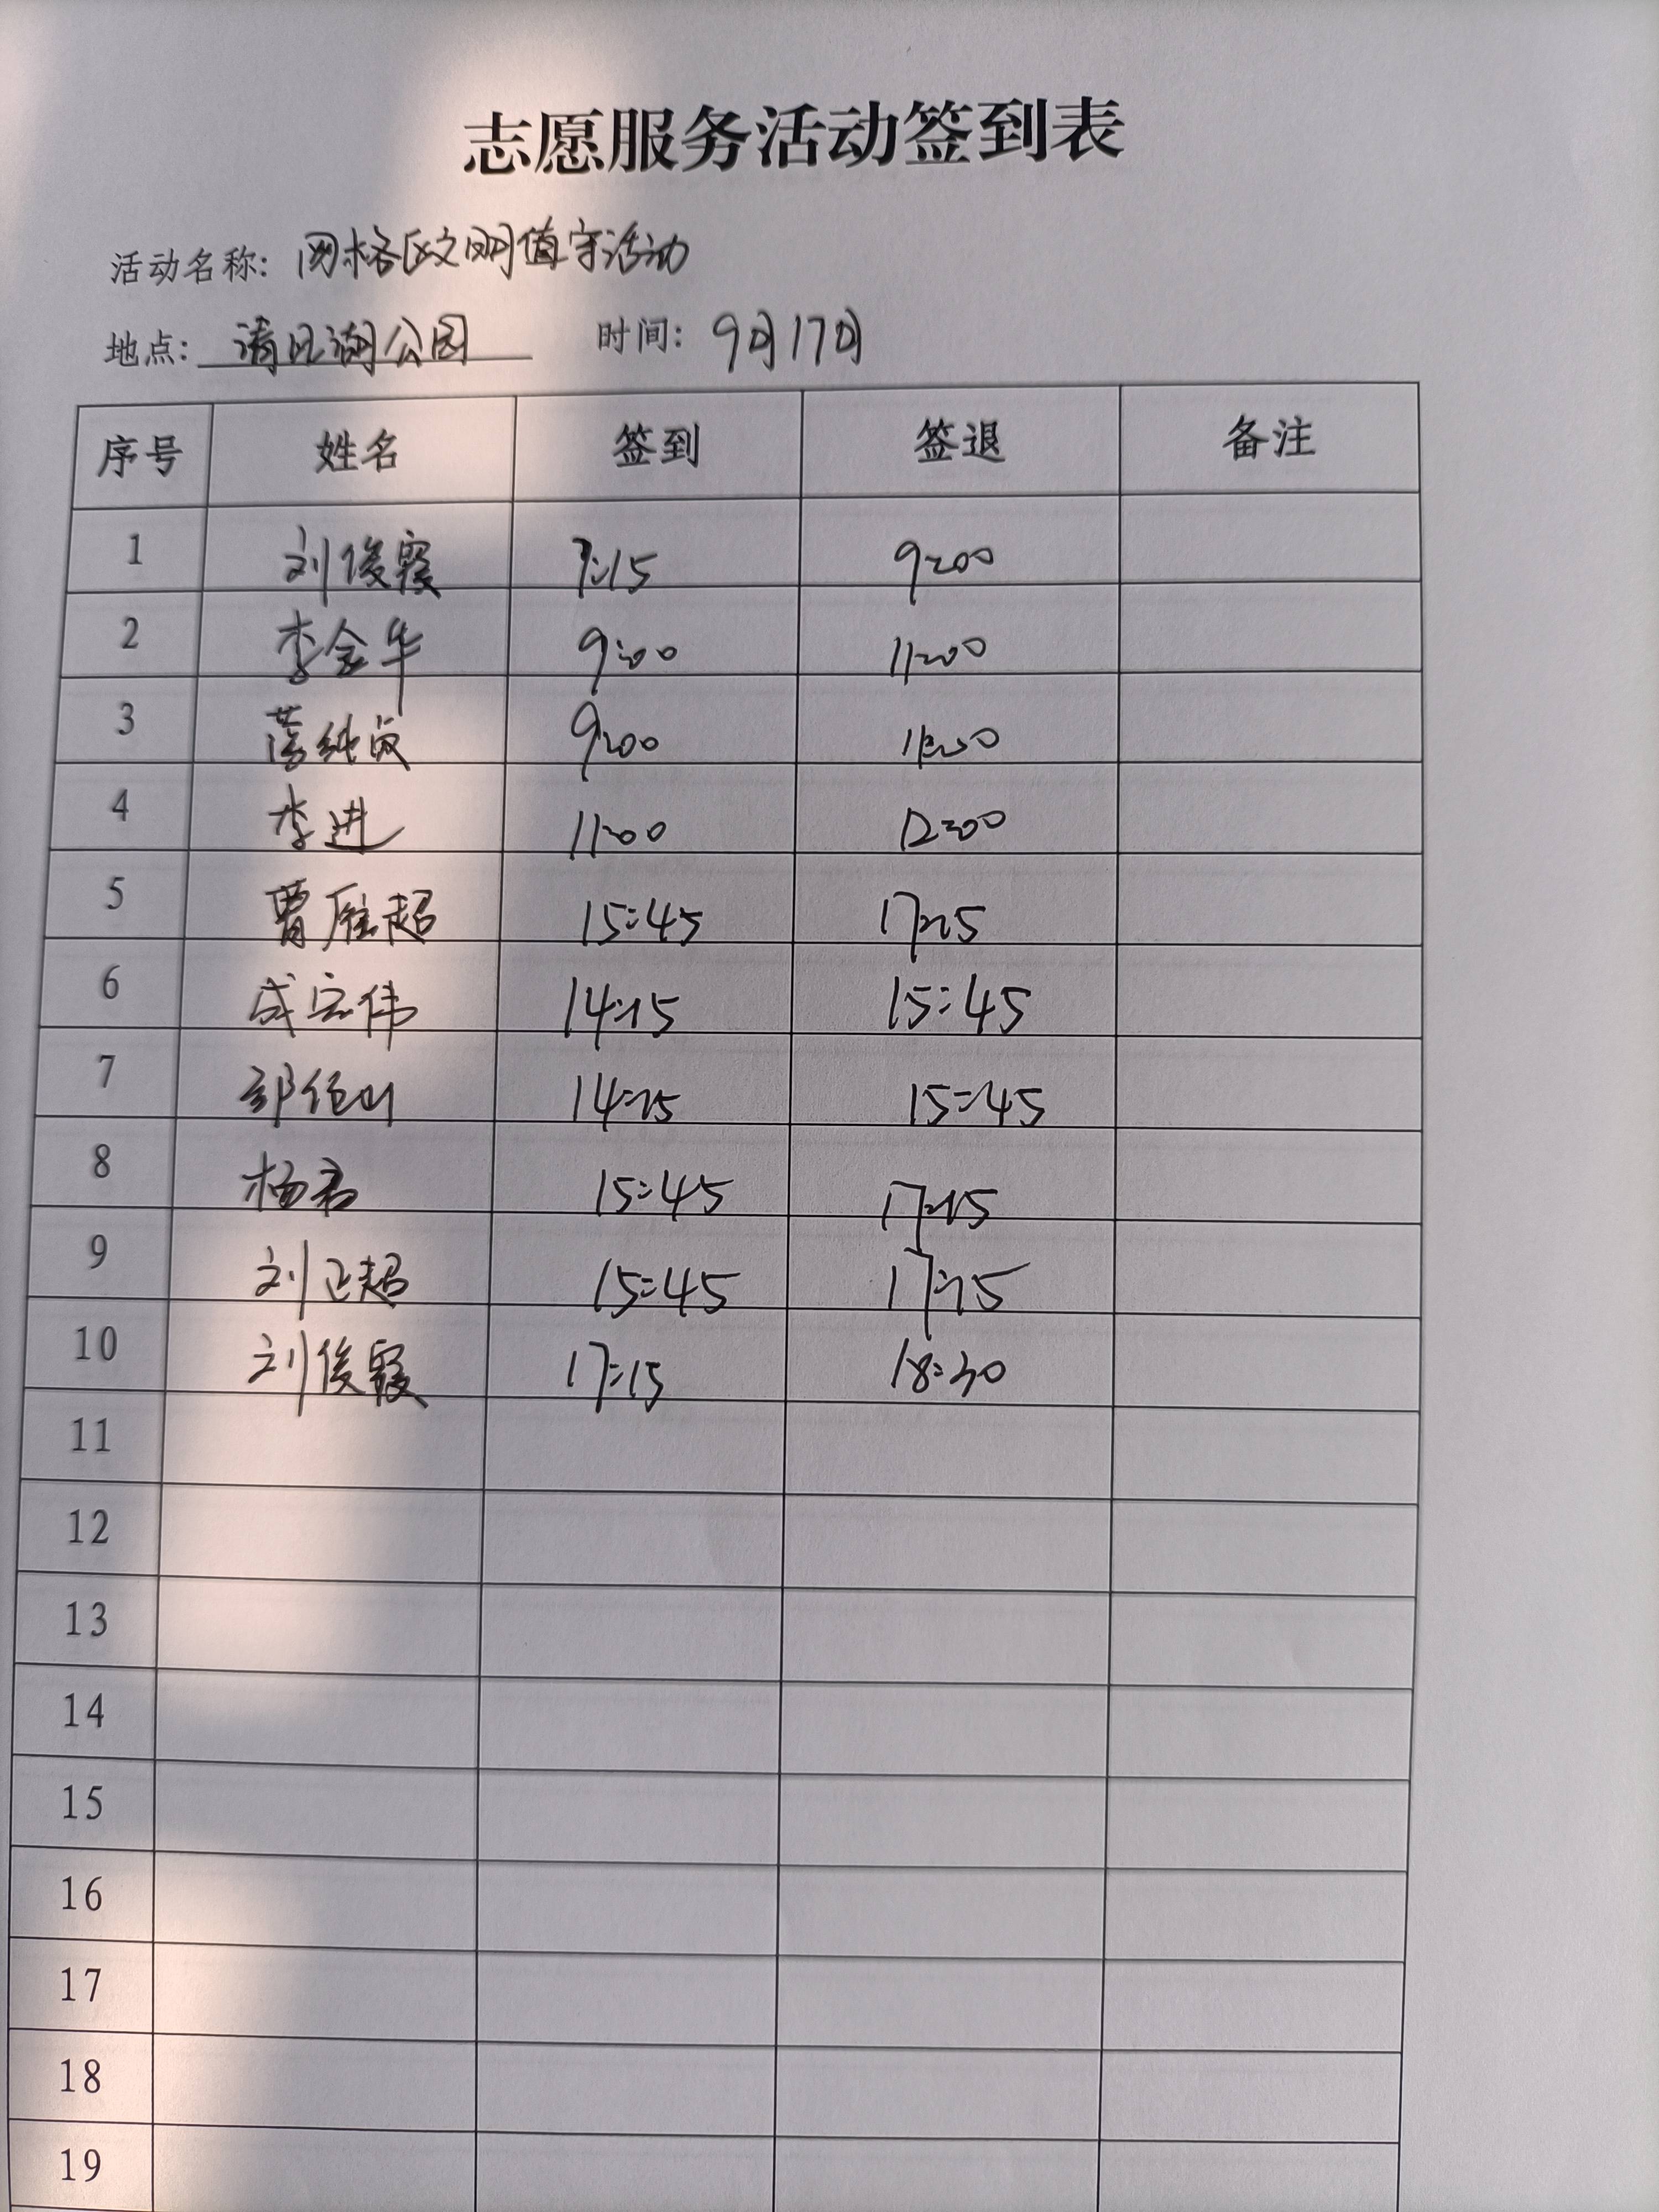 志愿服务活动签到表
活动名称: 网格区文明值守活动
地点: 清风湖公园 时间: 9月17日
序号 姓名 签到 签退 备注
1 刘俊霞 7:15 9:00
2 李金华 9:00 11:00
3 9:00 11:00
4 李进 11:00 12:00
5 曹 超 15:45 17:15
6 成宏伟 14:15 15:45
7 14:15 15:45
8 杨君 15:45 17:15
9 刘正超 15:45 17:15
10 刘俊霞 17:15 18:30
11
12
13
14
15
16
17
18
19